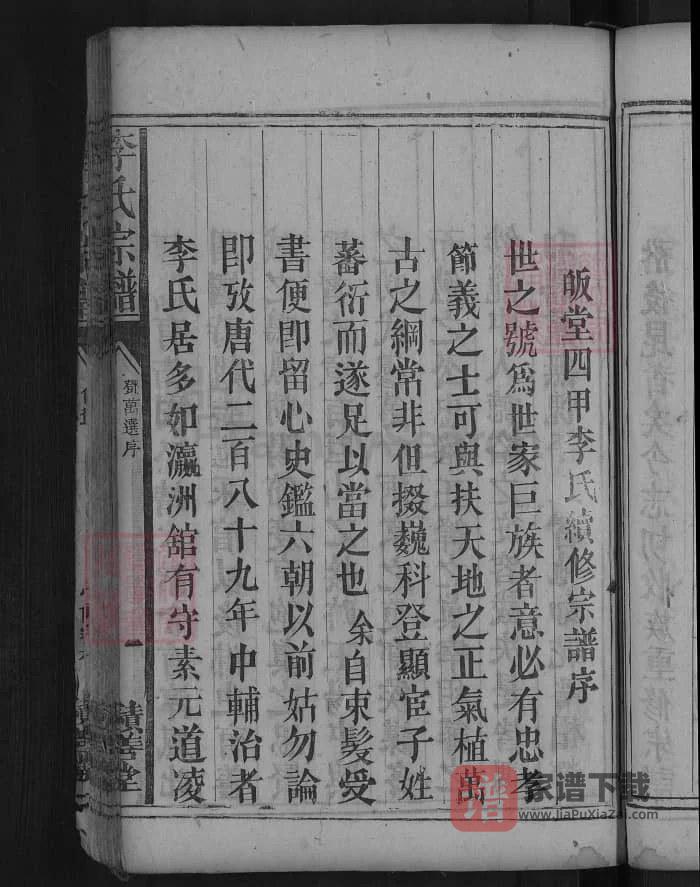 畈堂四甲李氏續修宗譜序
世之號爲世家巨族者意必有忠孝
節義之士可與扶天地之正氣植萬
古之綱常非但掇巍科登顯宦子姓
蕃衍而遂足以當之也余自束髮受
書便即留心史鑑六朝以前姑勿論
即攷唐代二百八十九年中輔治者
李氏居多如瀛洲舘有守素元道凌
李氏宗譜
贊萬選序
一
積善堂
譜 家谱下载
www.JiaPuXiaZai.com